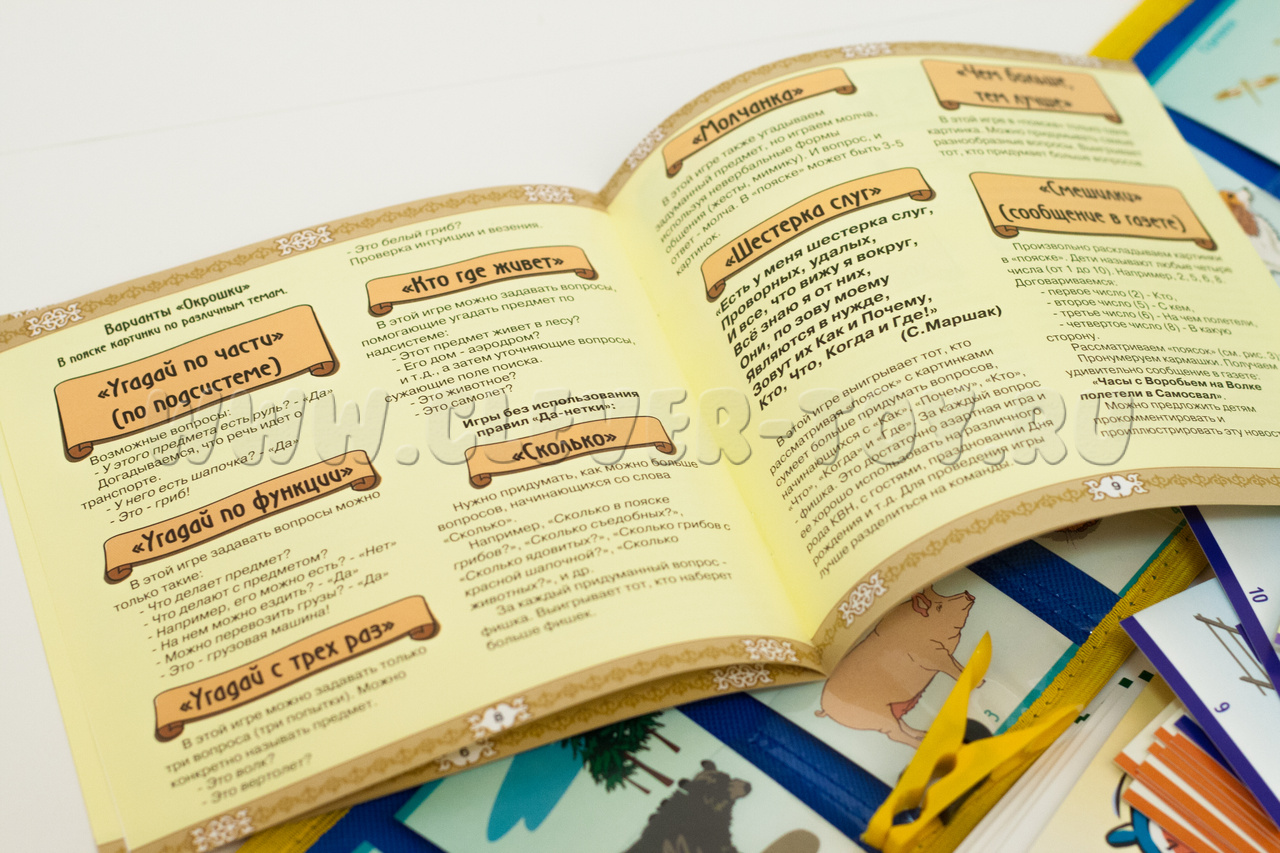 Варианты «Окрошки»
В пояске картинки по различным темам.
«Угадай по части»
(по подсистеме)
Возможные вопросы:
- У этого предмета есть руль? - «Да»
Догадываемся, что речь идет о
транспорте.
- У него есть шапочка? - «Да»
- Это - гриб!
«Угадай по функции»
В этой игре задавать вопросы можно
только такие:
- Что делает предмет?
- Что делают с предметом?
- Например, его можно есть? - «Нет»
- На нем можно ездить? - «Да»
- Можно перевозить грузы? - «Да»
- Это - грузовая машина!
«Угадай с трех раз»
В этой игре можно задавать только
три вопроса (три попытки). Можно
конкретно называть предмет.
- Это волк?
- Это вертолет?
- Это белый гриб?
Проверка интуиции и везения.
«Кто где живет»
В этой игре можно задавать вопросы,
помогающие угадать предмет по
надсистеме:
- Этот предмет живет в лесу?
- Его дом - аэродром?
и т.д., а затем уточняющие вопросы,
сужающие поле поиска.
- Это животное?
- Это самолет?
Игры без использования
правил «Да-нетки»:
«Сколько»
Нужно придумать, как можно больше
вопросов, начинающихся со слова
«Сколько».
Например, «Сколько в пояске
грибов?», «Сколько съедобных?»,
«Сколько ядовитых?», «Сколько грибов с
красной шапочкой?», «Сколько
животных?», и др.
За каждый придуманный вопрос -
фишка. Выигрывает тот, кто наберет
больше фишек.
8
6
«Молчанка»
В этой игре также угадываем
задуманный предмет, но играем молча,
используя невербальные формы
общения (жесты, мимику). И вопрос, и
ответ - молча. В «пояске» может быть 3-5
картинок.
«Шестерка слуг»
«Есть у меня шестерка слуг,
Проворных, удалых,
И все, что вижу я вокруг,
Всё знаю я от них,
Они, по зову моему
Являются в нужде,
Зовут их Как и Почему,
Кто, Что, Когда и Где!»
(С.Маршак)
В этой игре выигрывает тот, кто
рассматривая «поясок» с картинками
сумеет больше придумать вопросов,
начинающихся с «Как», «Почему», «Кто»,
«Что», «Когда» и «Где». За каждый вопрос
- фишка. Это достаточно азартная игра и
ее хорошо использовать на различного
рода КВН, с гостями, праздновании Дня
рождения и т.д. Для проведения игры
лучше разделиться на команды.
«Чем больше,
тем лучше»
В этой игре в «пояске» только одна
картинка. Можно придумывать самые
разнообразные вопросы. Выигрывает
тот, кто придумает больше вопросов.
«Смешилки»
(сообщение в газете)
Произвольно раскладываем картинки
в «пояске». Дети называют любые четыре
числа (от 1 до 10). Например, 2, 5, 6, 8.
Договариваемся:
- первое число (2) - Кто,
- второе число (5) - С кем,
- третье число (6) - На чем полетели,
- четвертое число (8) - В какую
сторону.
Рассматриваем «поясок» (см. рис. 3).
Пронумеруем кармашки. Получаем
удивительно сообщение в газете:
«Часы с Воробьем на Волке
полетели в Самосвал».
Можно предложить детям
прокомментировать и
проиллюстрировать эту новос
9
WWW.CLEVER-TOY.RU
3
9
10